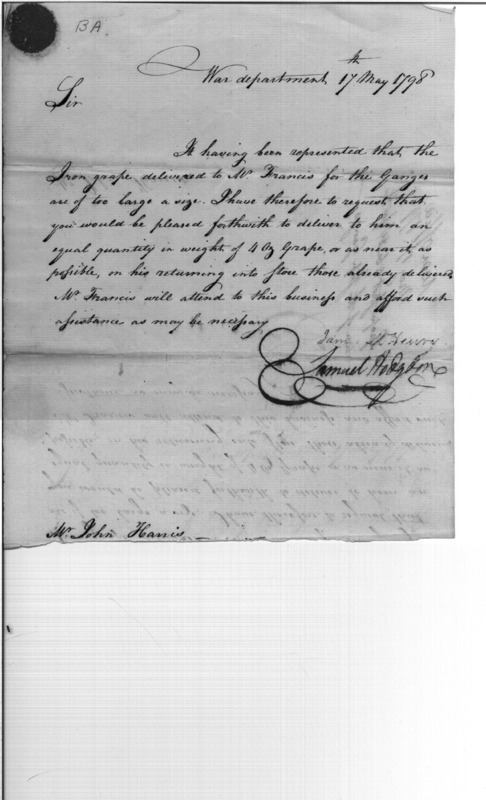 BA
War department 17th May 1798
Sir
It having been represented that the
Iron grape delivered to Mr. Francis for the Ganges
are of too large a size. I have therefore to request that
you would be pleased forthwith to deliver to him an
equal quantity in weight of 4 Oz Grape, or as near it, as
possible, on his returning into Store those already delivered
Mr. Francis will attend to this business and afford such
assistance as may be necessary
I am Sir
Samuel Hodgdon
Mr. John Harris